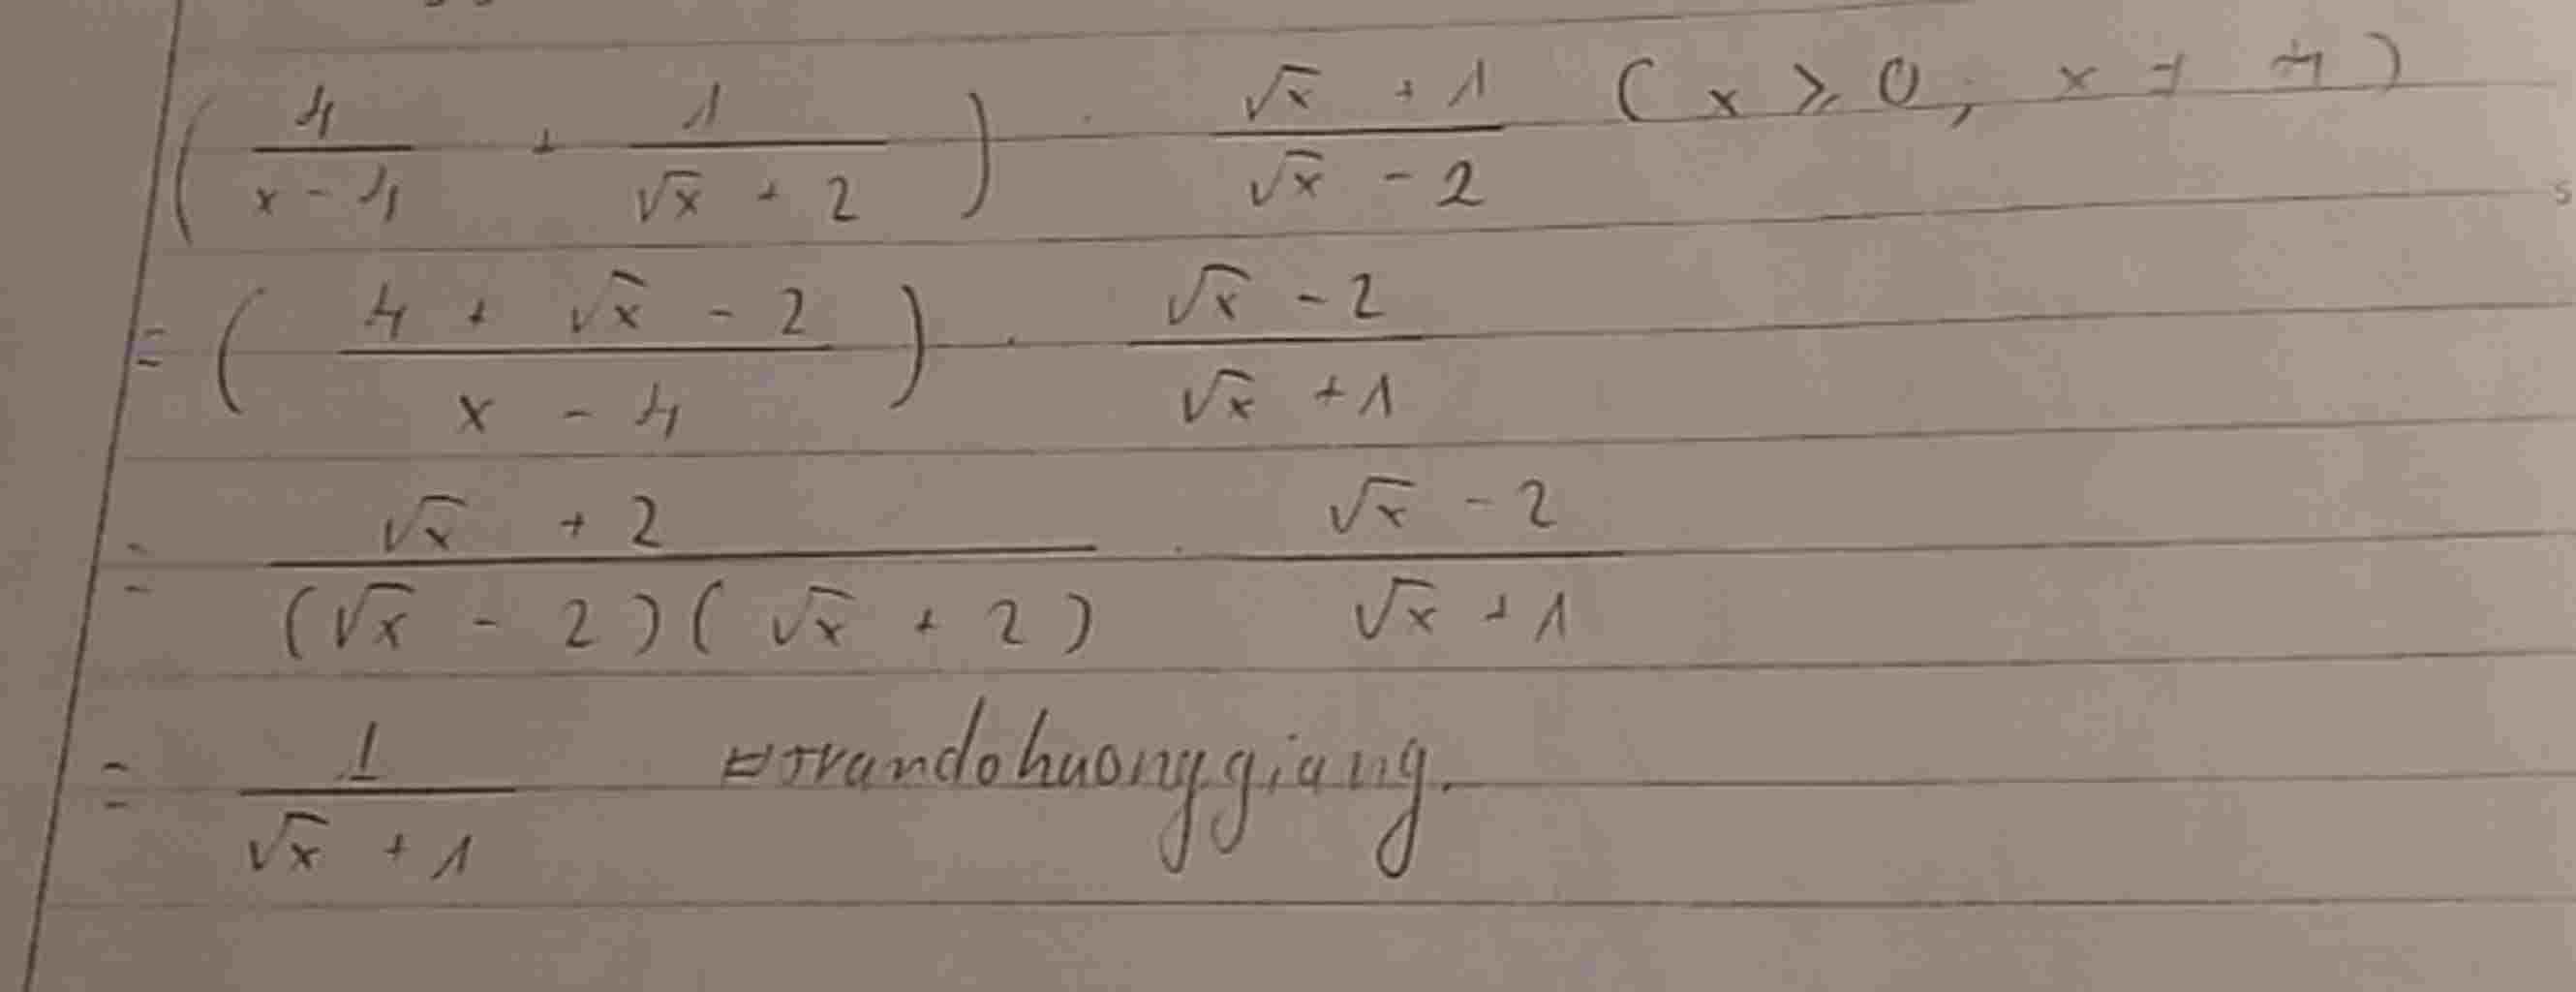 ( 4/(x - 4) + 1/(√x + 2) ) · (√x + 1)/(√x - 2) ( x ⩾ 0 ; x ≠ 4 )
= ( (4 + √x - 2)/(x - 4) ) · (√x - 2)/(√x + 1)
= (√x + 2)/((√x - 2)(√x + 2)) · (√x - 2)/(√x + 1)
= 1/(√x + 1) trandohuonggiang.